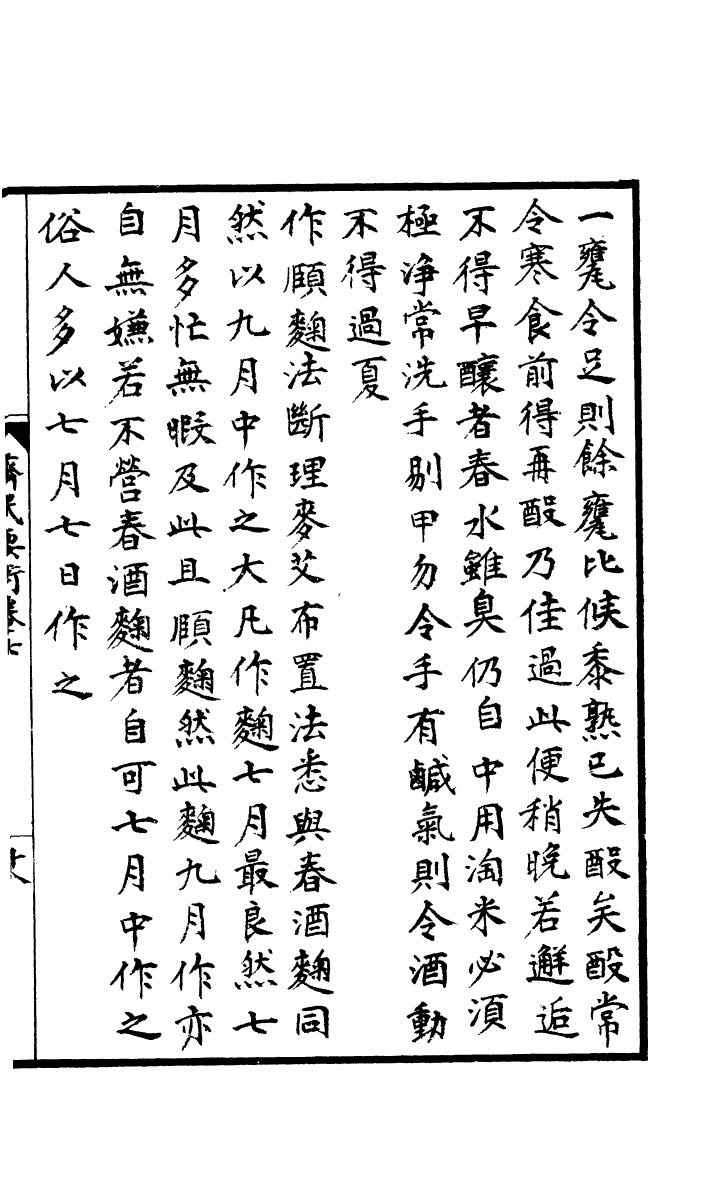 一甕令足則餘甕比候黍熟已失酘矣酘常
令寒食前得再酘乃佳過此便稍晚若邂逅
不得早釀者春水雖臭仍自中用淘米必須
極淨常洗手剔甲勿令手有鹹氣則令酒動
不得過夏
作頤麴法斷理麥艾布置法悉與春酒麴同
然以九月中作之大凡作麴七月最良然七
月多忙無暇及此且頤麴然此麴九月作亦
自無嫌若不營春酒麴者自可七月中作之
俗人多以七月七日作之
齊民要術卷七